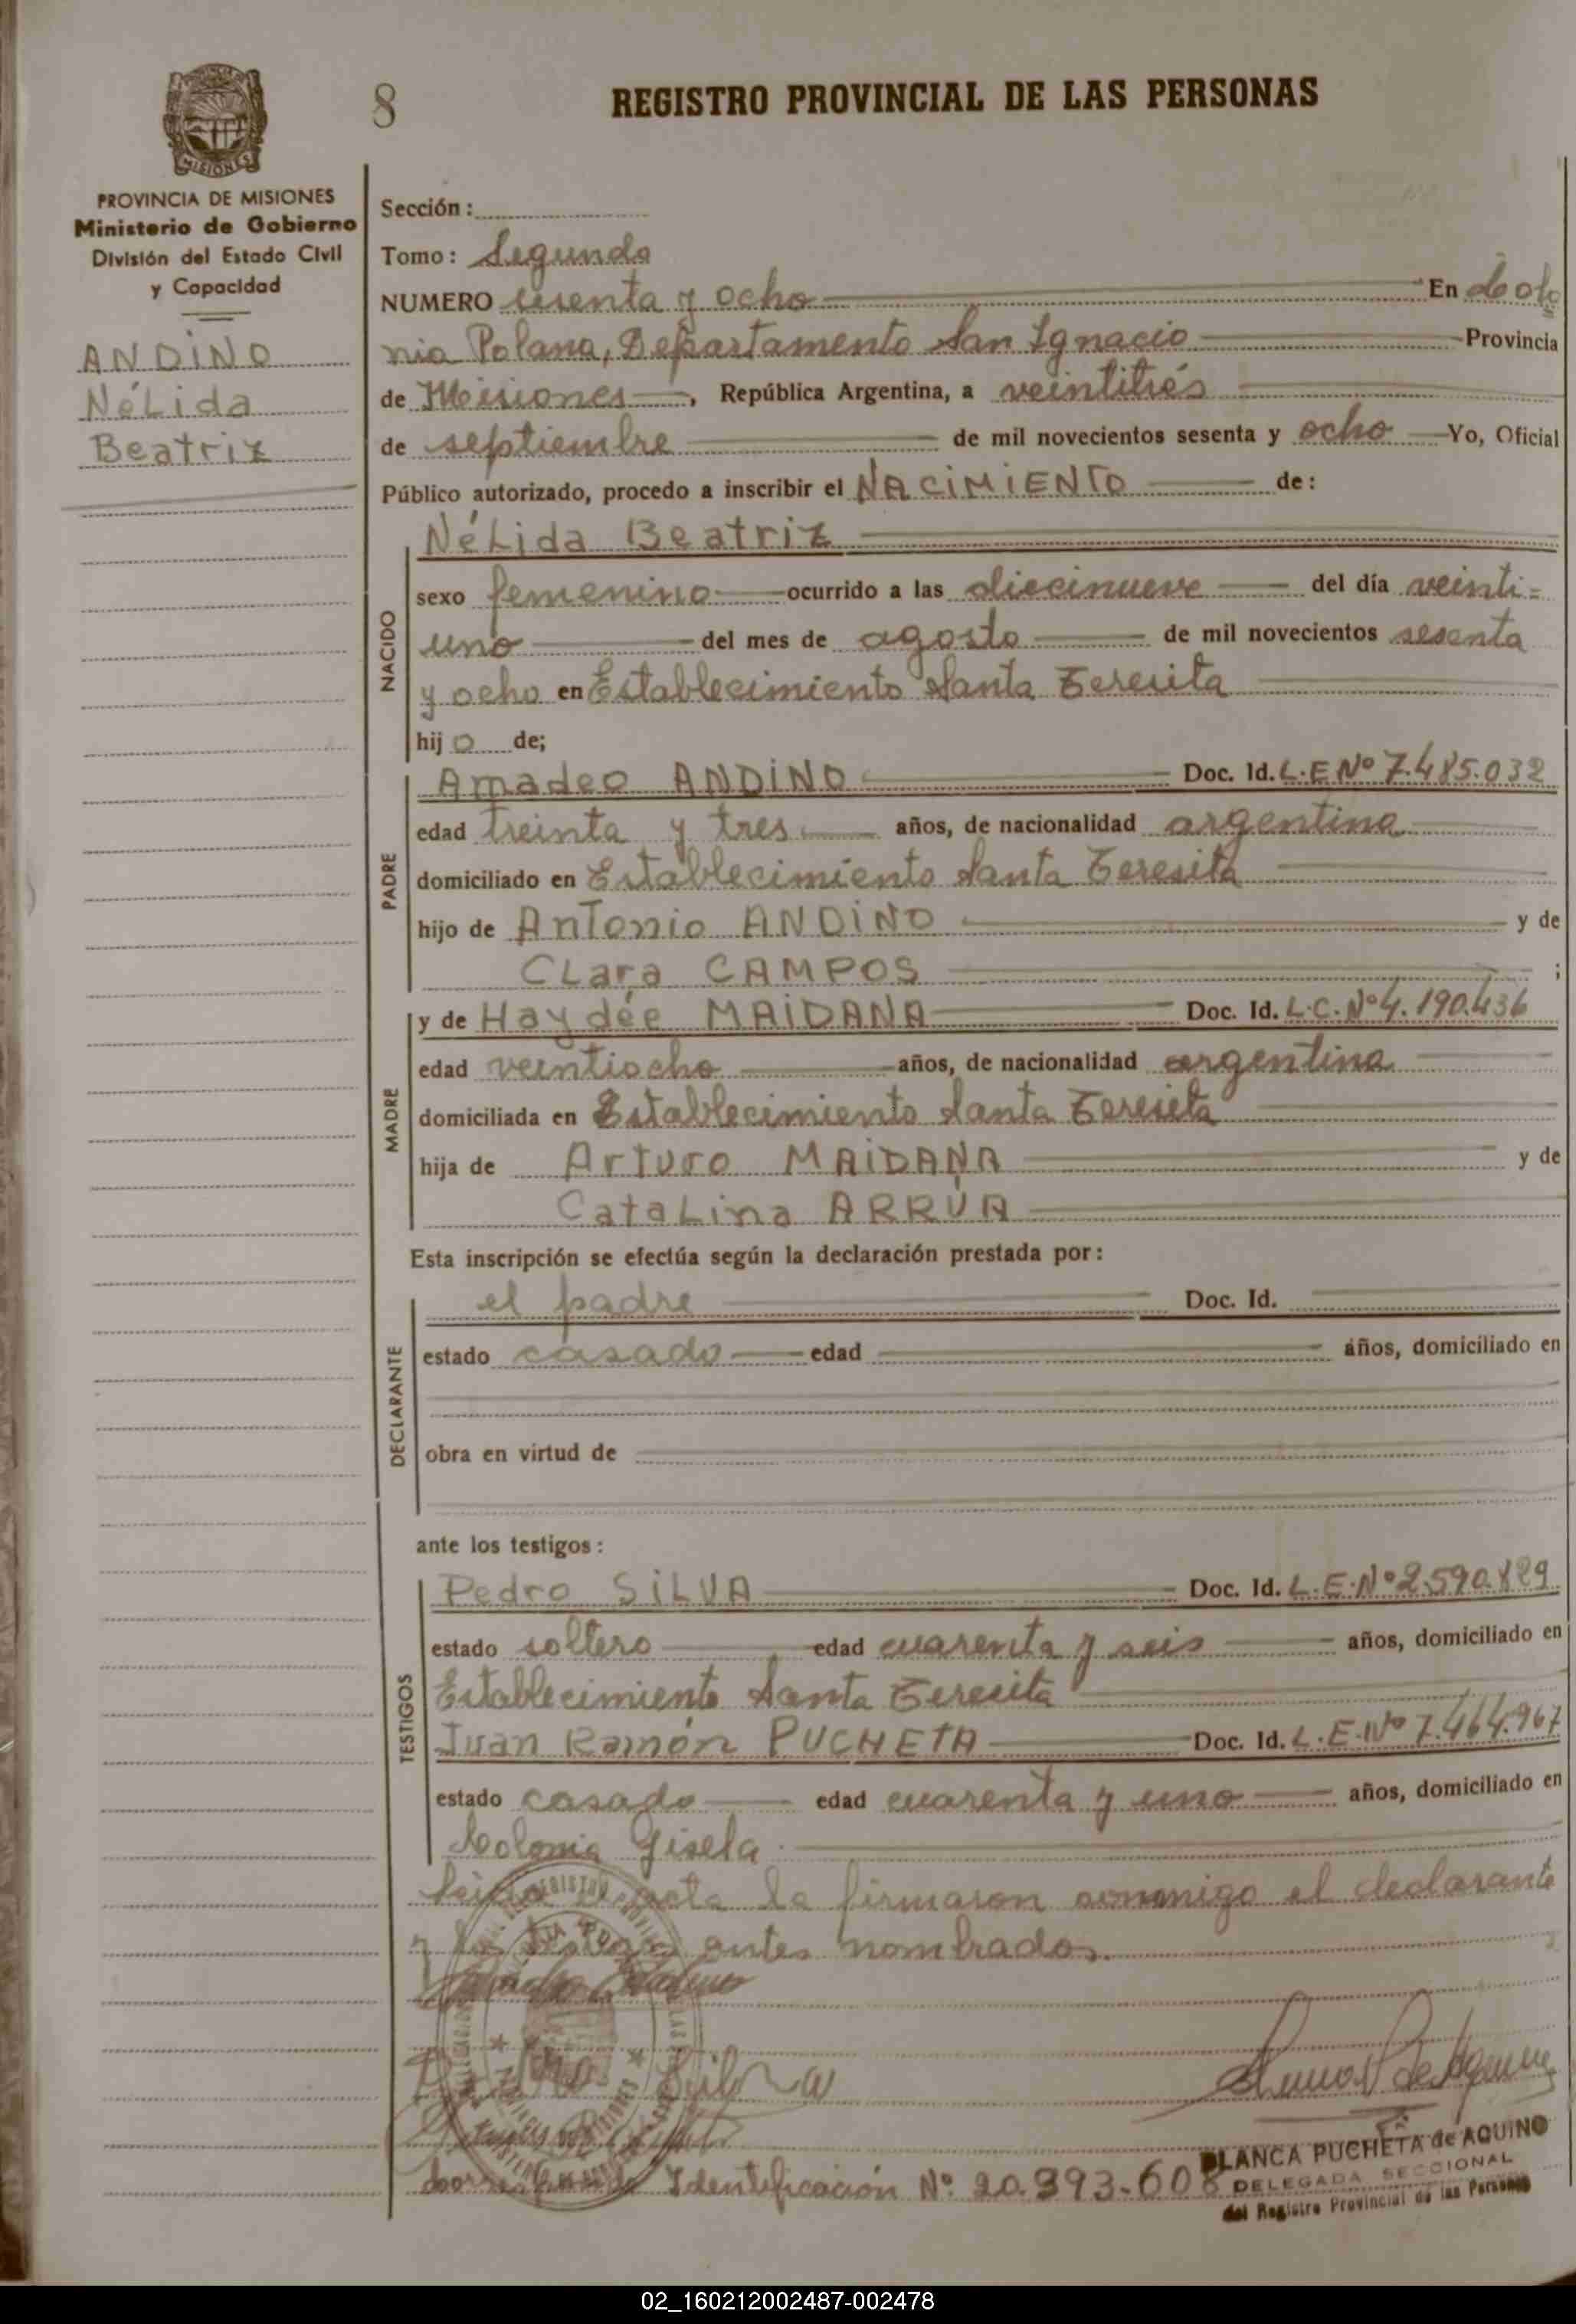 8
REGISTRO PROVINCIAL DE LAS PERSONAS
MISIONES
PROVINCIA DE MISIONES
Ministerio de Gobierno
División del Estado Civil
y Capacidad
ANDINO
NéLida
Beatriz
Sección:
Tomo: Segundo
NUMERO sesenta y ocho En Colo
nia Polana, Departamento San Ignacio Provincia
de Misiones, República Argentina, a veintitrés
de septiembre de mil novecientos sesenta y ocho Yo, Oficial
Público autorizado, procedo a inscribir el NACIMIENTO de:
NACIDO
NéLida Beatriz
sexo femenino ocurrido a las diecinueve del día veinti=
uno del mes de agosto de mil novecientos sesenta
y ocho en Establecimiento Santa Teresita
hijo de;
PADRE
Amadeo ANDINO Doc. Id. L.E Nº 7.485.032
edad treinta y tres años, de nacionalidad argentina
domiciliado en Establecimiento Santa Teresita
hijo de Antonio ANDINO y de
CLara CAMPOS ;
MADRE
y de Haydée MAIDANA Doc. Id. L.C. Nº 4.190.436
edad veintiocho años, de nacionalidad argentina
domiciliada en Establecimiento Santa Teresita
hija de Arturo MAIDANA y de
CataLina ARRÚA
Esta inscripción se efectúa según la declaración prestada por:
DECLARANTE
el padre Doc. Id.
estado casado edad años, domiciliado en
obra en virtud de
ante los testigos:
TESTIGOS
Pedro SILVA Doc. Id. L.E.Nº 2.590.829
estado soltero edad cuarenta y seis años, domiciliado en
Establecimiento Santa Teresita
Juan Ramón PUCHETA Doc. Id. L.E.Nº 7.464.967
estado casado edad cuarenta y uno años, domiciliado en
Colonia Gisela.
Leida el acta la firmaron conmigo el declarante
y los testigos antes nombrados.
Silva
BLANCA PUCHETA de AQUINO
DELEGADA SECCIONAL
del Registro Provincial de las Personas
Corresponde Identificación Nº 20.393-608
02_160212002487-002478